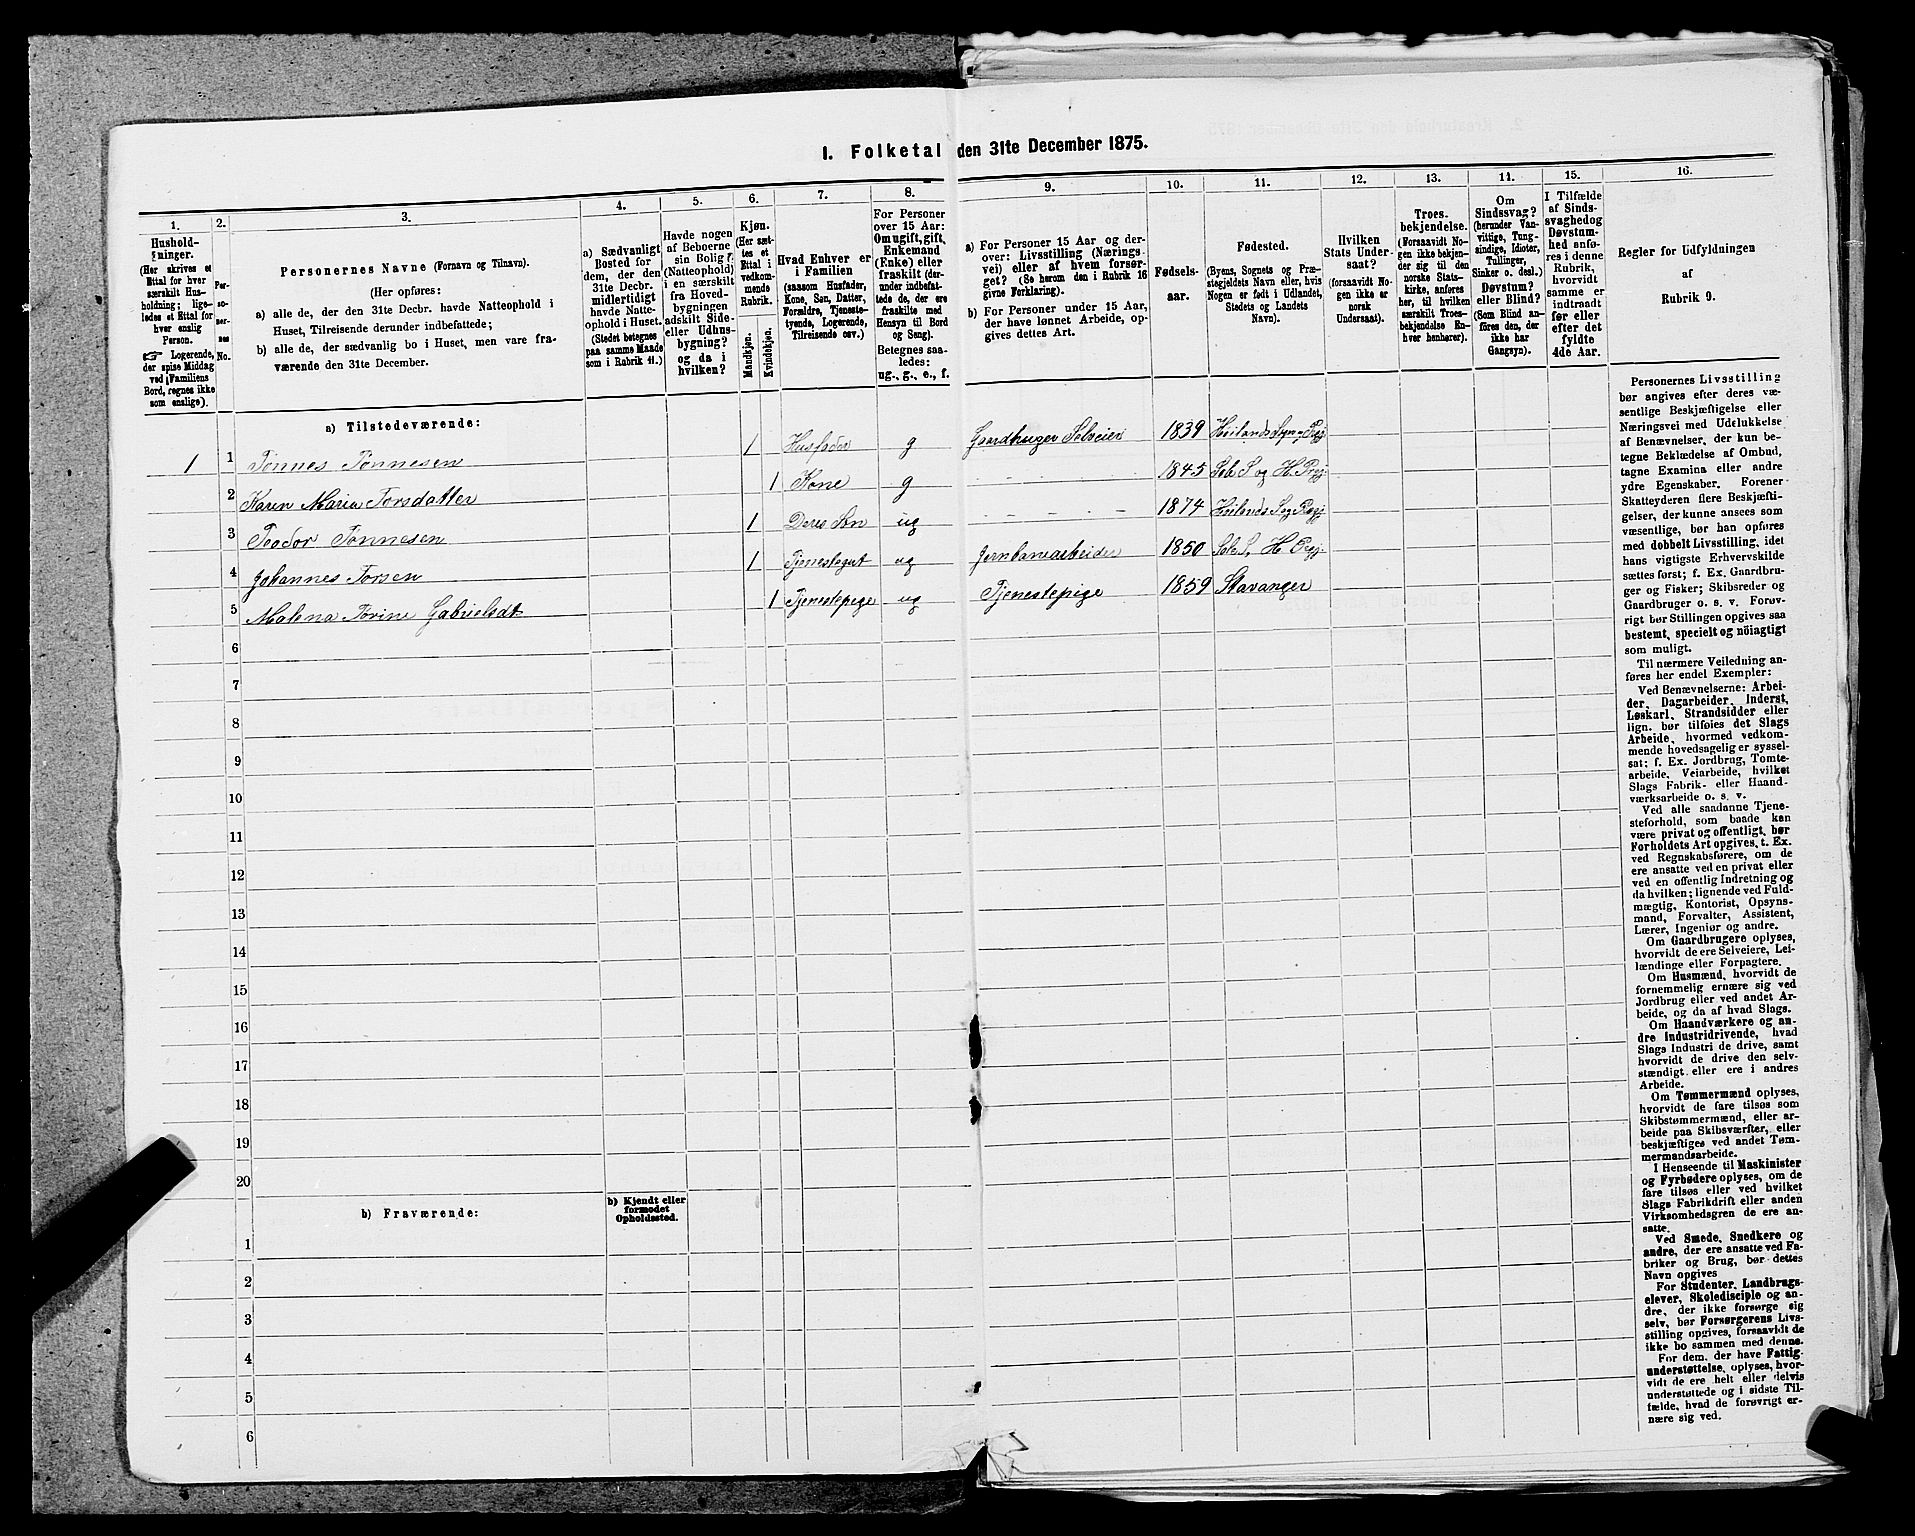 I. Folketal den 31te December 1875.
1.
Hushold-
ninger.
(Her skrives et
Ettal for hver
særskilt Hus-
holdning; lige-
ledes et Ettal for
hver enslig
Person.
☞ Logerende,
der spise Middag
ved Familiens
Bord, regnes ikke
som enslige).
2.
Per-
so-
ner-
nes
No.
3.
Personernes Navne (Fornavn og Tilnavn).
(Her opføres:
a) alle de, der den 31te Decbr. havde Natteophold i
Huset, Tilreisende derunder indbefattede;
b) alle de, der sædvanlig bo i Huset, men vare fra-
værende den 31te December.
4.
a) Sædvanligt
Bosted for
dem, der den
31te Decbr.
midlertidigt
havde Natte-
ophold i Huset.
(Stedet betegnes
paa samme Maade
som i Rubrik 11.)
5.
Havde nogen
af Beboerne
sin Bolig
(Natteophold)
i en særskilt
fra Hoved-
bygningen
adskilt Side-
eller Udhus-
bygning?
og da i
hvilken?
6.
Kjøn.
(Her sæt-
tes et
Ettal i
vedkom-
mende
Rubrik.
Mandkjøn.
Kvindekjøn.
7.
Hvad Enhver er
i Familien
(saasom Husfader,
Kone, Søn, Datter,
Forældre, Tjeneste-
tyende, Logerende,
Tilreisende osv.)
8.
For Personer
over 15 Aar:
Om ugift, gift,
Enkemand
(Enke) eller
fraskilt (der-
under indbefat-
tede de, der ere
fraskilte med
Hensyn til Bord
og Seng).
Betegnes saa-
ledes:
ug., g., e., f.
9.
a) For Personer 15 Aar og der-
over: Livsstilling (Nærings-
vei) eller af hvem forsør-
get? (Se herom den i Rubrik 16
givne Forklaring).
b) For Personer under 15 Aar,
der have lønnet Arbeide, op-
gives dettes Art.
10.
Fødsels-
aar.
11.
Fødested.
(Byens, Sognets og Præ-
stegjeldets Navn eller, hvis
Nogen er født i Udlandet,
Stedets og Landets
Navn).
12.
Hvilken
Stats Under-
saat?
(forsaavidt No-
gen ikke er
norsk
Undersaat).
13.
Troes-
bekjendelse.
(Forsaavidt No-
gen ikke bekjen-
der sig til den
norske Stats-
kirke, anføres
her, til hvilken
særskilt Troes-
bekjendelse En-
hver henhører).
14.
Om
Sindssvag?
(herunder Van-
vittige, Tung-
sindige, Idioter,
Tullinger,
Sinker o. desl.)
Døvstum?
eller Blind?
(Som Blind an-
føres den, der
ikke har
Gangsyn).
15.
I Tilfælde
af Sinds-
svaghed og
Døvstum-
hed anfø-
res i denne
Rubrik,
hvorvidt
samme er
indtraadt
før eller
efter det
fyldte
4de Aar.
16.
Regler for Udfyldningen
af
Rubrik 9.
a) Tilstedeværende:
1 1 Tønnes Tønnesen 1 Husfader g Gaardbruger Selveier 1839 Høilands
2 Karen Maria Torsdatter 1 Kone g 1845 Sole S og H. Pregj
3 Teodor Tønnesen 1 Deres Søn ug 1874 Høilands S og Pregj
4 Johannes Torsen 1 Tjenestegut ug Jernbanearbeider 1850 Sole S, H. Pregj.
5 Malena Torine Gabrielsdt 1 Tjenestepige ug Tjenestepige 1859 Stavanger
6
7
8
9
10
11
12
13
14
15
16
17
18
19
20
b) Fraværende:
b) Kjendt eller
formodet
Opholdssted.
1
2
3
4
5
6
Personernes Livsstilling
bør angives efter deres væ-
sentlige Beskjæftigelse eller
Næringsvei med Udelukkelse
af Benævnelser, der kun be-
tegne Beklædelse af Ombud,
tagne Examina eller andre
ydre Egenskaber. Forener
Skatteyderen flere Beskjæfti-
gelser, der kunne ansees som
væsentlige, bør han opføres
med dobbelt Livsstilling, idet
hans vigtigste Erhvervskilde
sættes først; f. Ex. Gaardbru-
ger og Fisker; Skibsreder og
Gaardbruger o. s. v. Forøv-
rigt bør Stillingen opgives saa
bestemt, specielt og nöiagtigt
som muligt.
Til nærmere Veiledning an-
føres her endel Exempler:
Ved Benævnelserne: Arbei-
der, Dagarbeider, Inderst,
Løskarl, Strandsidder eller
lign. bør tilføies det Slags
Arbeide, hvormed vedkom-
mende hovedsagelig er syssel-
sat; f. Ex. Jordbrug, Tomte-
arbeide, Veiarbeide, hvilket
Slags Fabrik- eller Haand-
værksarbeide o. s. v.
Ved alle saadanne Tjene-
steforhold, som baade kan
være privat og offentligt, bør
Forholdets Art opgives, t. Ex.
ved Regnskabsførere, om de
ere ansatte ved en privat eller
ved en offentlig Indretning og
da hvilken; lignende ved Fuld-
mægtig, Kontorist, Opsyns-
mand, Forvalter, Assistent,
Lærer, Ingeniør og andre.
Om Gaardbrugere oplyses,
hvorvidt de ere Selveiere, Lei-
lændinge eller Forpagtere.
Om Husmænd, hvorvidt de
fornemmelig ernære sig ved
Jordbrug eller ved andet Ar-
beide, og da af hvad Slags.
Om Haandværkere og an-
dre Industridrivende, hvad
Slags Industri de drive, samt
hvorvidt de drive den selv-
stændigt eller ere i andres
Arbeide.
Om Tømmermænd oplyses,
hvorvidt de fare tilsøs som
Skibstømmermænd, eller ar-
beide paa Skibsværfter, eller
beskjæftiges ved andet Tøm-
mermandsarbeide.
I Henseende til Maskinister
og Fyrbødere oplyses, om de
fare tilsøs eller ved hvilket
Slags Fabrikdrift eller anden
Virksomhedsgren de ere an-
satte.
Ved Smede, Snedkere og
andre, der ere ansatte ved Fa-
briker og Brug, bør dettes
Navn opgives
For Studenter, Landbrugs-
elever, Skoledisciple og an-
dre, der ikke forsørge sig
selv, bør Forsørgerens Livs-
stilling opgives, forsaavidt de
ikke bo sammen med denne.
For dem, der have Fattig-
understøttelse, oplyses, hvor-
vidt de ere helt eller delvis
understøttede og i sidste Til-
fælde, hvad de forøvrigt er-
nære sig ved.